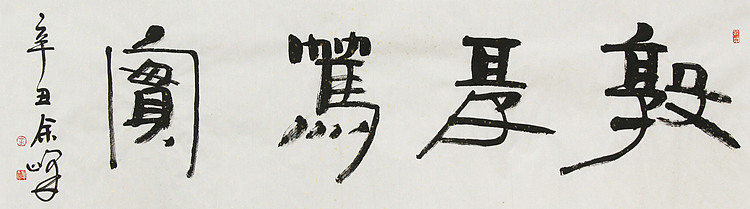 敦厚篤實
辛丑余峰